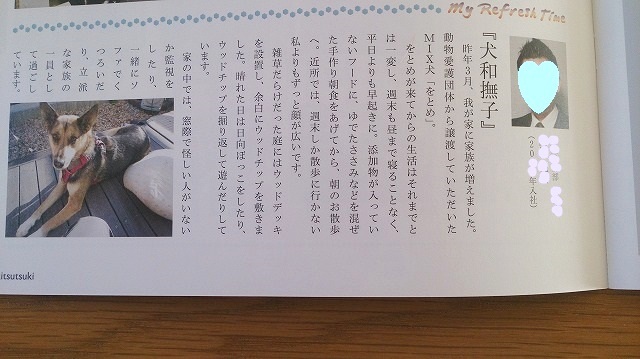 My Refresh Time
(20 年入社)
『犬和撫子』
昨年3月、我が家に家族が増えました。
動物愛護団体から譲渡していただいた
MIX犬「をとめ」。
をとめが来てからの生活はそれまでと
は一変し、週末も昼まで寝ることなく、
平日よりも早起きに。添加物が入ってい
ないフードに、ゆでたささみなどを混ぜ
た手作り朝食をあげてから、朝のお散歩
へ。近所では、週末しか散歩に行かない
私よりもずっと顔が広いです。
雑草だらけだった庭にはウッドデッキ
を設置し、余白にウッドチップを敷きま
した。晴れた日は日向ぼっこをしたり、
ウッドチップを掘り返して遊んだりして
います。
家の中では、窓際で怪しい人がいない
か監視を
したり、
一緒にソ
ファでく
つろいだ
り、立派
な家族の
一員とし
て過ごし
ています。
itsutsuki